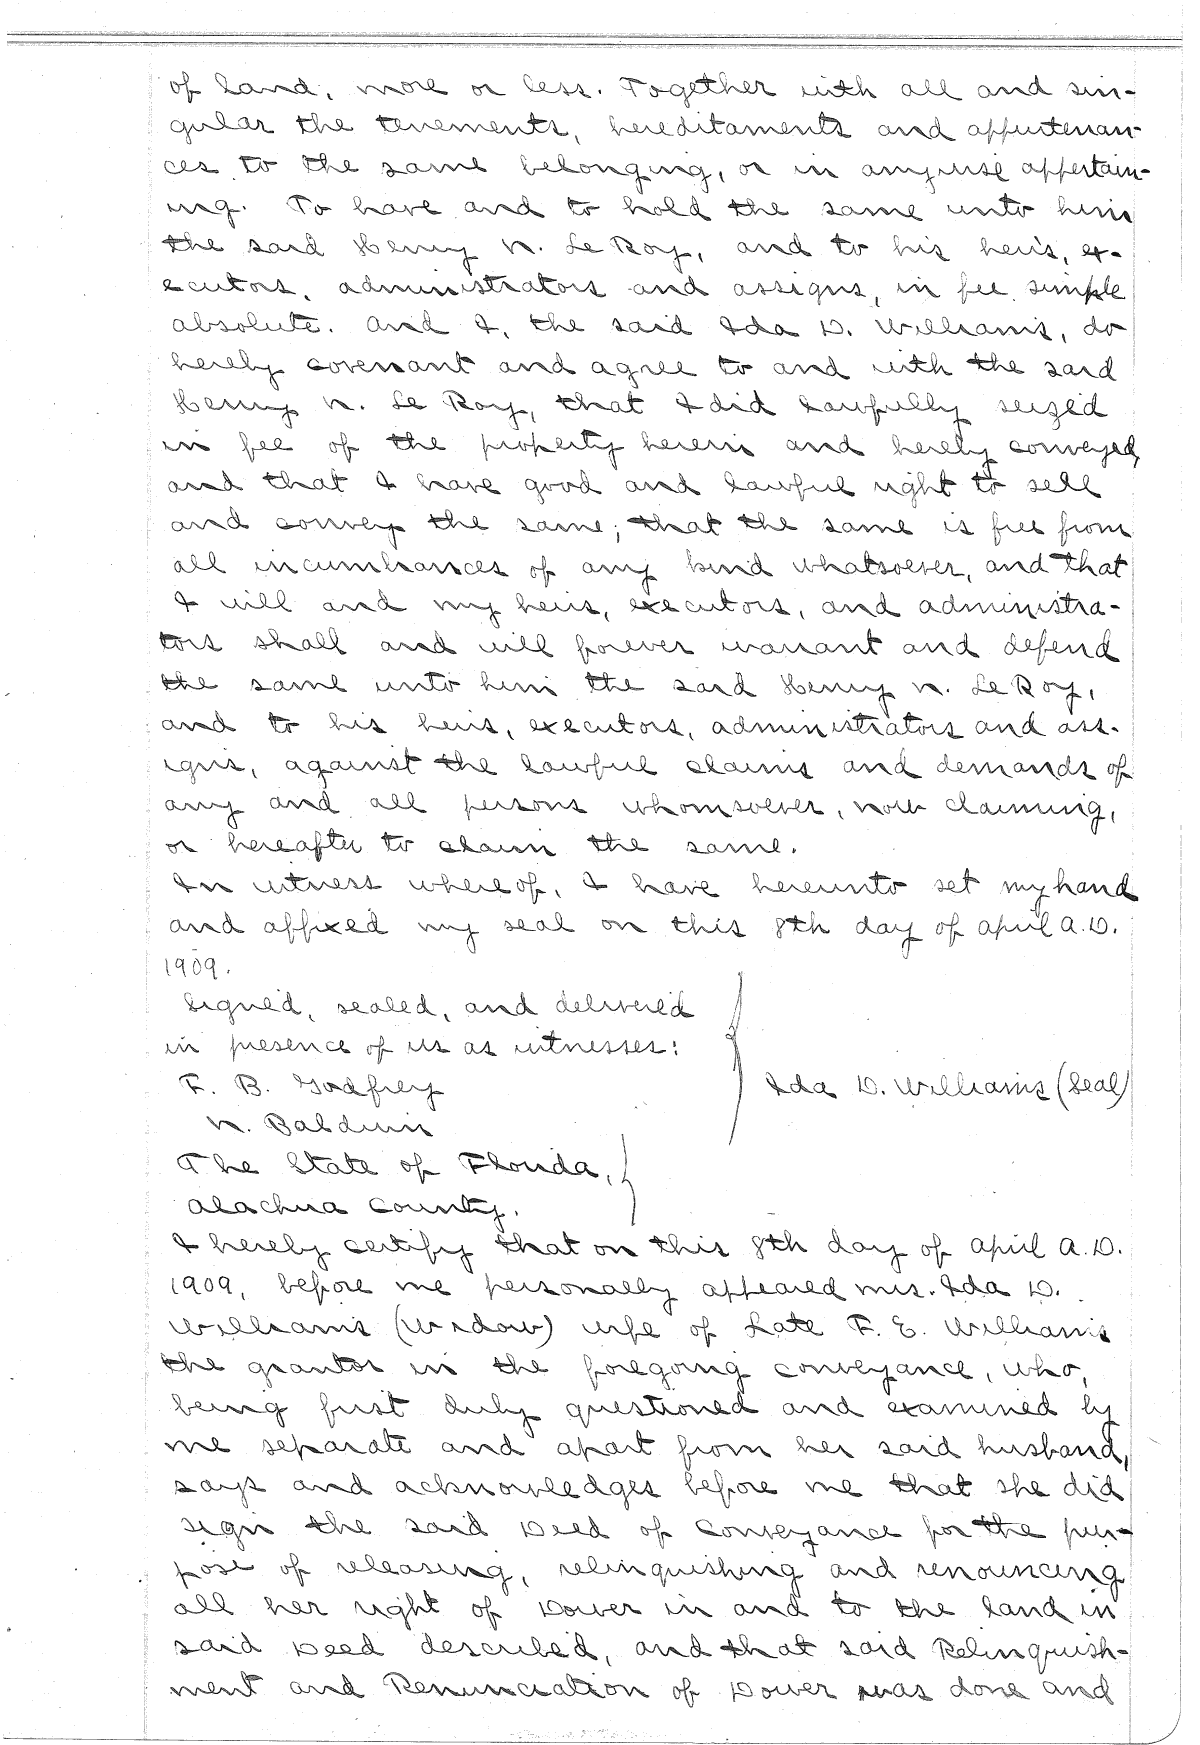 of land, more or less. Together with all and sin-
gular the tenements, hereditaments and appurtenan-
ces to the same belonging, or in anywise appertain-
ing. To have and to hold the same unto him
the said Henry N. Le Roy, and to his heirs, ex-
ecutors, administrators and assigns, in fee simple
absolute. And I, the said Ida D. Williams, do
hereby covenant and agree to and with the said
Henry N. Le Roy, that I did lawfully seized
in fee of the property herein and hereby conveyed,
and that I have good and lawful right to sell
and convey the same; that the same is free from
all incumbrances of any kind whatsoever, and that
I will and my heirs, executors, and administra-
tors shall and will forever warrant and defend
the same unto him the said Henry N. Le Roy,
and to his heirs, executors, administrators and ass-
igns, against the lawful claims and demands of
any and all persons whomsoever, now claiming,
or hereafter to claim the same.
In witness whereof, I have hereunto set my hand
and affixed my seal on this 8th day of April A.D.
1909.
Signed, sealed, and delivered
in presence of us as witnesses:
F. B. Godfrey
Ida D. Williams (Seal)
N. Baldwin
The State of Florida,
Alachua County.
I hereby certify that on this 8th day of April A.D.
1909, before me personally appeared Mrs. Ida D.
Williams (Widow) wife of Late F. E. Williams
the grantor in the foregoing conveyance, who,
being first duly questioned and examined by
me separate and apart from her said husband,
says and acknowledges before me that she did
sign the said Deed of Conveyance for the pur-
pose of releasing, relinquishing and renouncing
all her right of Dower in and to the land in
said Deed described, and that said Relinquish-
ment and Renunciation of Dower was done and